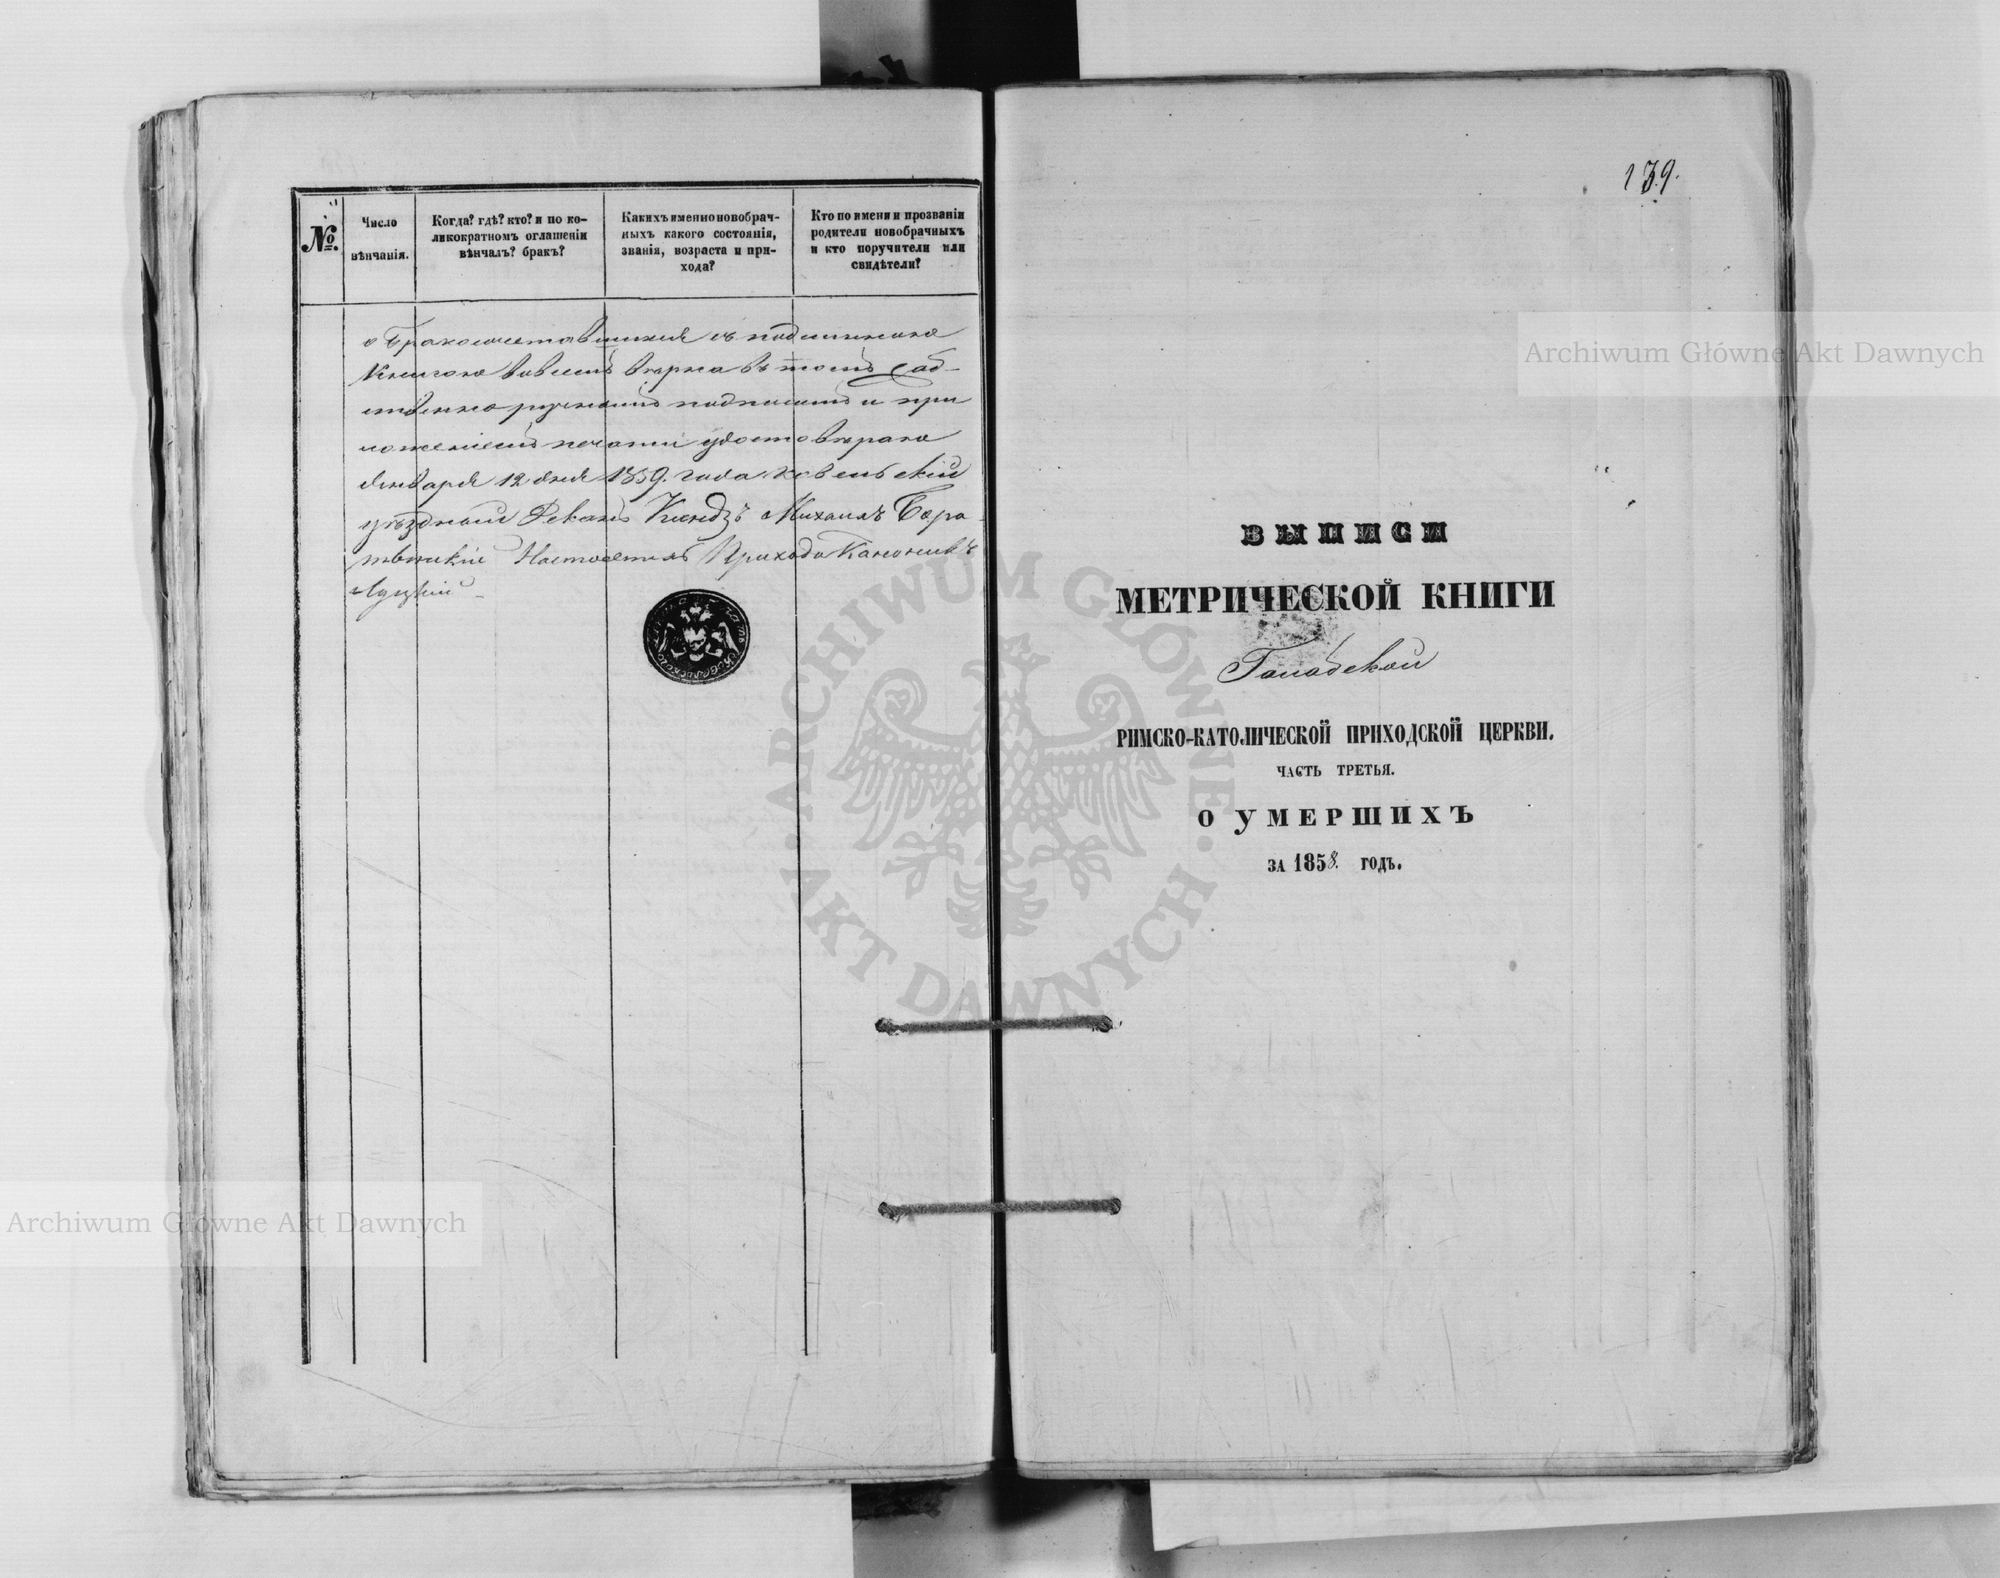 №.
Число
вѣнчанія.
Когда? гдѣ? кто? и по ко-
ликократномъ оглашеніи
вѣнчалъ? бракъ?
Какихъ именно новобрач-
ныхъ какого состоянія,
званія, возраста и при-
хода?
Кто по имени и прозванію
родители новобрачныхъ
и кто поручители или
свидѣтели?
о бракосочетавшихся съ подлинною
Книгою во всемъ вѣрна въ томъ соб-
ственноручнымъ подписомъ и при
ложеніемъ печати удостовѣряю
Января 12 дня 1859. года Ковельскій
уѣздный Деканъ Ксендзъ Михаилъ
Настоятель Прихода Каноникъ
Луцкій
139.
ВЫПИСИ
МЕТРИЧЕСКОЙ КНИГИ
Голобской
РИМСКО-КАТОЛИЧЕСКОЙ ПРИХОДСКОЙ ЦЕРКВИ.
ЧАСТЬ ТРЕТЬЯ.
О УМЕРШИХЪ
ЗА 1858. ГОДЪ.
Archiwum Główne Akt Dawnych
Archiwum Główne Akt Dawnych
ARCHIWUM GŁÓWNE
AKT DAWNYCH